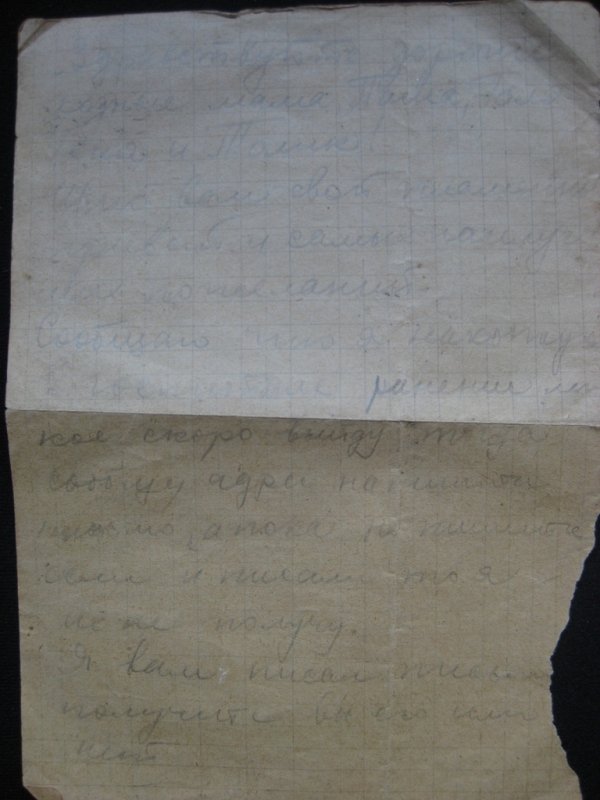 Здравствуйте дорогие
родные мама Тина,
и Толик!
Шлю вам свой пламенный
привет и самых наилуч
ших пожеланий.
Сообщаю что я нахожусь
в госпитале ранение
кое скоро выйду тогда
сообщу адрес напишите
письмо, а пока не пишите
если и писали то я
не получу.
Я вам писал письмо
получите вы его или
нет